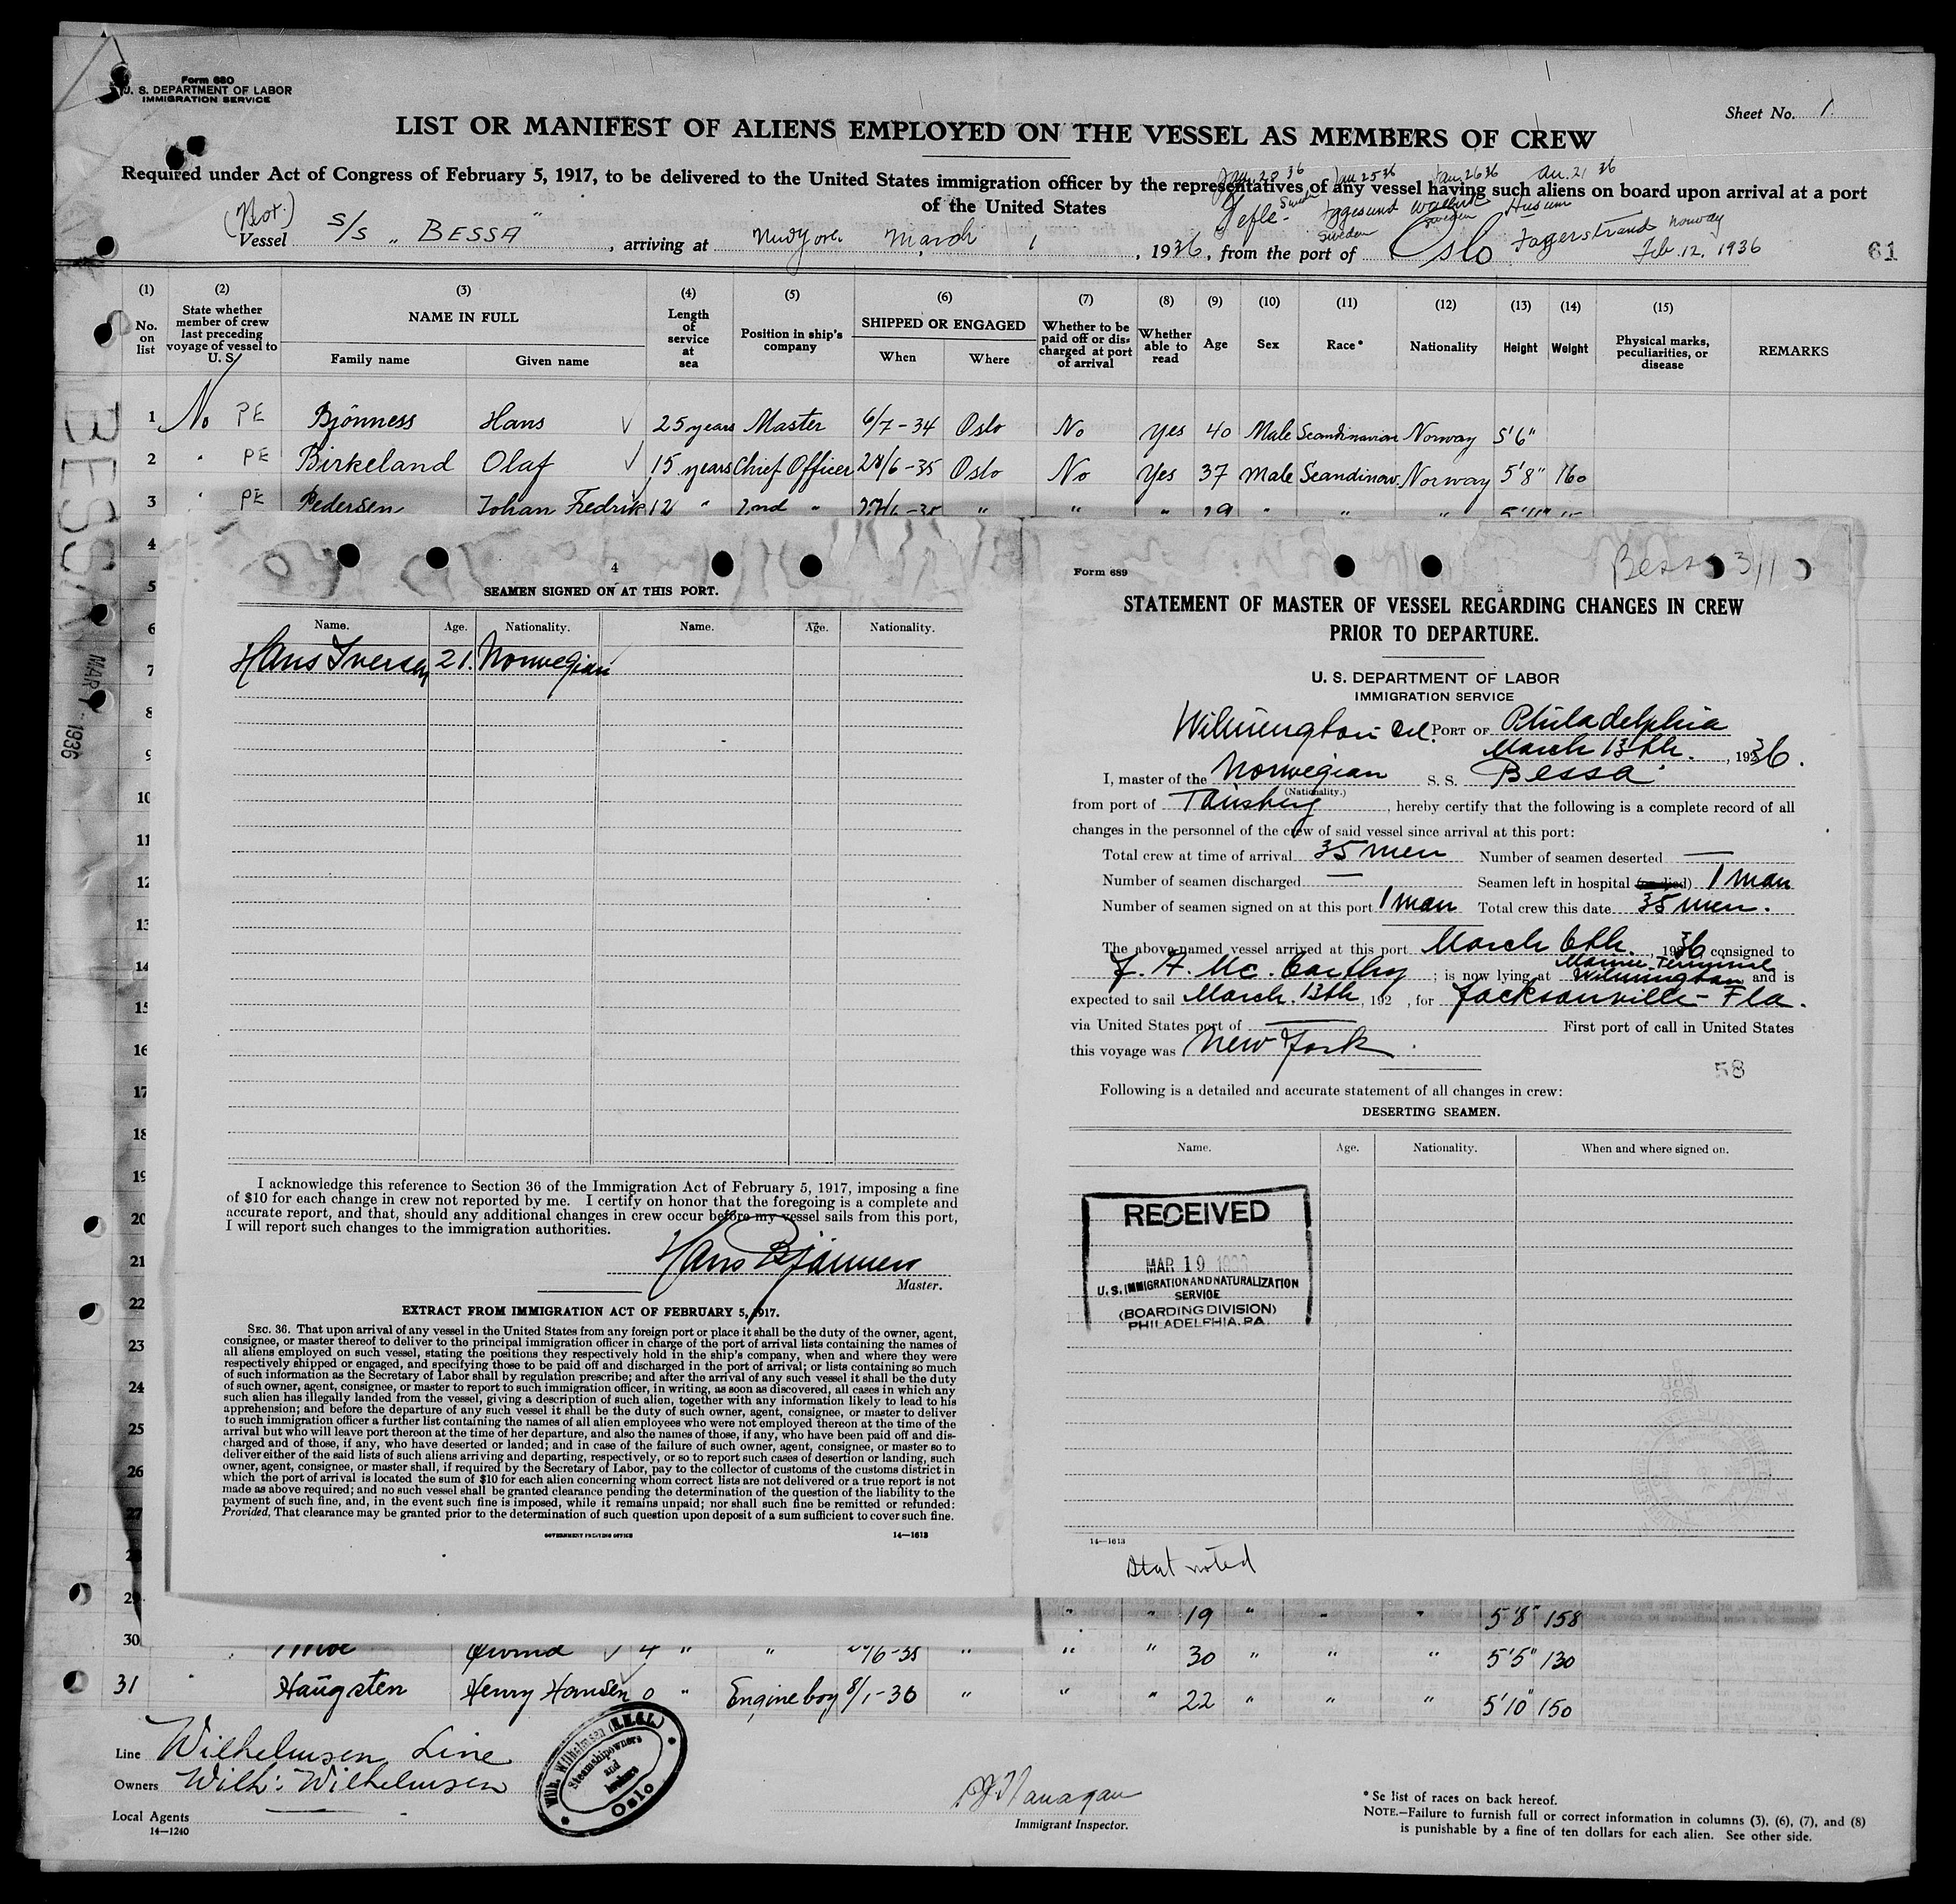 Form 680
U. S. DEPARTMENT OF LABOR
IMMIGRATION SERVICE
Sheet No. 1
LIST OR MANIFEST OF ALIENS EMPLOYED ON THE VESSEL AS MEMBERS OF CREW
Required under Act of Congress of February 5, 1917, to be delivered to the United States immigration officer by the representatives of any vessel having such aliens on board upon arrival at a port
of the United States
Jan. 20 36 Jan 25 36 Jan. 26 36 Jan. 21 36
Gefle - Sweden Iggesund Sweden Sweden Husum
(Nor.)
Vessel S/S "BESSA", arriving at New York March 1, 1936, from the port of Oslo Fagerstrand Norway
Feb. 12, 1936
61
(1) (2) (3) (4) (5) (6) (7) (8) (9) (10) (11) (12) (13) (14) (15)
No. on list
State whether member of crew last preceding voyage of vessel to U. S.
NAME IN FULL
Family name Given name
Length of service at sea
Position in ship's company
SHIPPED OR ENGAGED
When Where
Whether to be paid off or discharged at port of arrival
Whether able to read
Age Sex Race* Nationality Height Weight
Physical marks, peculiarities, or disease
REMARKS
1 No PE Bjönness Hans 25 years Master 6/7-34 Oslo No Yes 40 Male Scandinavian Norway 5'6"
2 " PE Birkeland Olaf 15 years Chief Officer 28/6-35 Oslo No Yes 37 Male Scandinav. Norway 5'8" 160
3 " PE Pedersen Johan Fredrik 12 " 2nd " " " " " " "
4
5
6
7
8
9
10
11
12
13
14
15
16
17
18
19
20
21
22
23
24
25
26
27
29
30
BESSA
MAR 1936
4
SEAMEN SIGNED ON AT THIS PORT.
Name. Age. Nationality. Name. Age. Nationality.
Hans Iversen 21. Norwegian
I acknowledge this reference to Section 36 of the Immigration Act of February 5, 1917, imposing a fine
of $10 for each change in crew not reported by me. I certify on honor that the foregoing is a complete and
accurate report, and that, should any additional changes in crew occur before my vessel sails from this port,
I will report such changes to the immigration authorities.
Hans Bjönness
Master.
EXTRACT FROM IMMIGRATION ACT OF FEBRUARY 5, 1917.
SEC. 36. That upon arrival of any vessel in the United States from any foreign port or place it shall be the duty of the owner, agent,
consignee, or master thereof to deliver to the principal immigration officer in charge of the port of arrival lists containing the names of
all aliens employed on such vessel, stating the positions they respectively hold in the ship's company, when and where they were
respectively shipped or engaged, and specifying those to be paid off and discharged in the port of arrival; or lists containing so much
of such information as the Secretary of Labor shall by regulation prescribe; and after the arrival of any such vessel it shall be the duty
of such owner, agent, consignee, or master to report to such immigration officer, in writing, as soon as discovered, all cases in which any
such alien has illegally landed from the vessel, giving a description of such alien, together with any information likely to lead to his
apprehension; and before the departure of any such vessel it shall be the duty of such owner, agent, consignee, or master to deliver
to such immigration officer a further list containing the names of all alien employees who were not employed thereon at the time of the
arrival but who will leave port thereon at the time of her departure, and also the names of those, if any, who have been paid off and dis-
charged and of those, if any, who have deserted or landed; and in case of the failure of such owner, agent, consignee, or master so to
deliver either of the said lists of such aliens arriving and departing, respectively, or so to report such cases of desertion or landing, such
owner, agent, consignee, or master shall, if required by the Secretary of Labor, pay to the collector of customs of the customs district in
which the port of arrival is located the sum of $10 for each alien concerning whom correct lists are not delivered or a true report is not
made as above required; and no such vessel shall be granted clearance pending the determination of the question of the liability to the
payment of such fine, and, in the event such fine is imposed, while it remains unpaid; nor shall such fine be remitted or refunded:
Provided, That clearance may be granted prior to the determination of such question upon deposit of a sum sufficient to cover such fine.
GOVERNMENT PRINTING OFFICE 14—1613
Bessa 3/1
Form 689
STATEMENT OF MASTER OF VESSEL REGARDING CHANGES IN CREW
PRIOR TO DEPARTURE.
U. S. DEPARTMENT OF LABOR
IMMIGRATION SERVICE
Wilmington Del. PORT OF Philadelphia
March 13th., 1936.
I, master of the Norwegian S. S. Bessa
(Nationality.)
from port of Tönsberg, hereby certify that the following is a complete record of all
changes in the personnel of the crew of said vessel since arrival at this port:
Total crew at time of arrival 35 men Number of seamen deserted —
Number of seamen discharged — Seamen left in hospital (or died) 1 man
Number of seamen signed on at this port 1 man Total crew this date 35 men.
The above-named vessel arrived at this port March 6th., 1936 consigned to
J. A. Mc. Carthy; is now lying at Marine Terminal Wilmington and is
expected to sail March. 13th, 192 , for Jacksonville - Fla.
via United States port of — First port of call in United States
this voyage was New York.
58
Following is a detailed and accurate statement of all changes in crew:
DESERTING SEAMEN.
Name. Age. Nationality. When and where signed on.
RECEIVED
MAR 19
U. S. IMMIGRATION AND NATURALIZATION
SERVICE
(BOARDING DIVISION)
PHILADELPHIA, PA.
14—1613
Stat noted
" " 19 " " " 5'8" 158
4 " " " " " 30 " " " 5'5" 130
31 " Haugsten Henry Hansen 0 " Engine boy 8/1-36 " " " 22 " " " 5'10" 150
Line Wilhelmsen Line
Owners Wilh: Wilhelmsen
Local Agents
14—1240
Wilh. Wilhelmsen
Steamshipowners
and
brokers
Oslo
Immigrant Inspector.
* Se list of races on back hereof.
NOTE.—Failure to furnish full or correct information in columns (3), (6), (7), and (8)
is punishable by a fine of ten dollars for each alien. See other side.